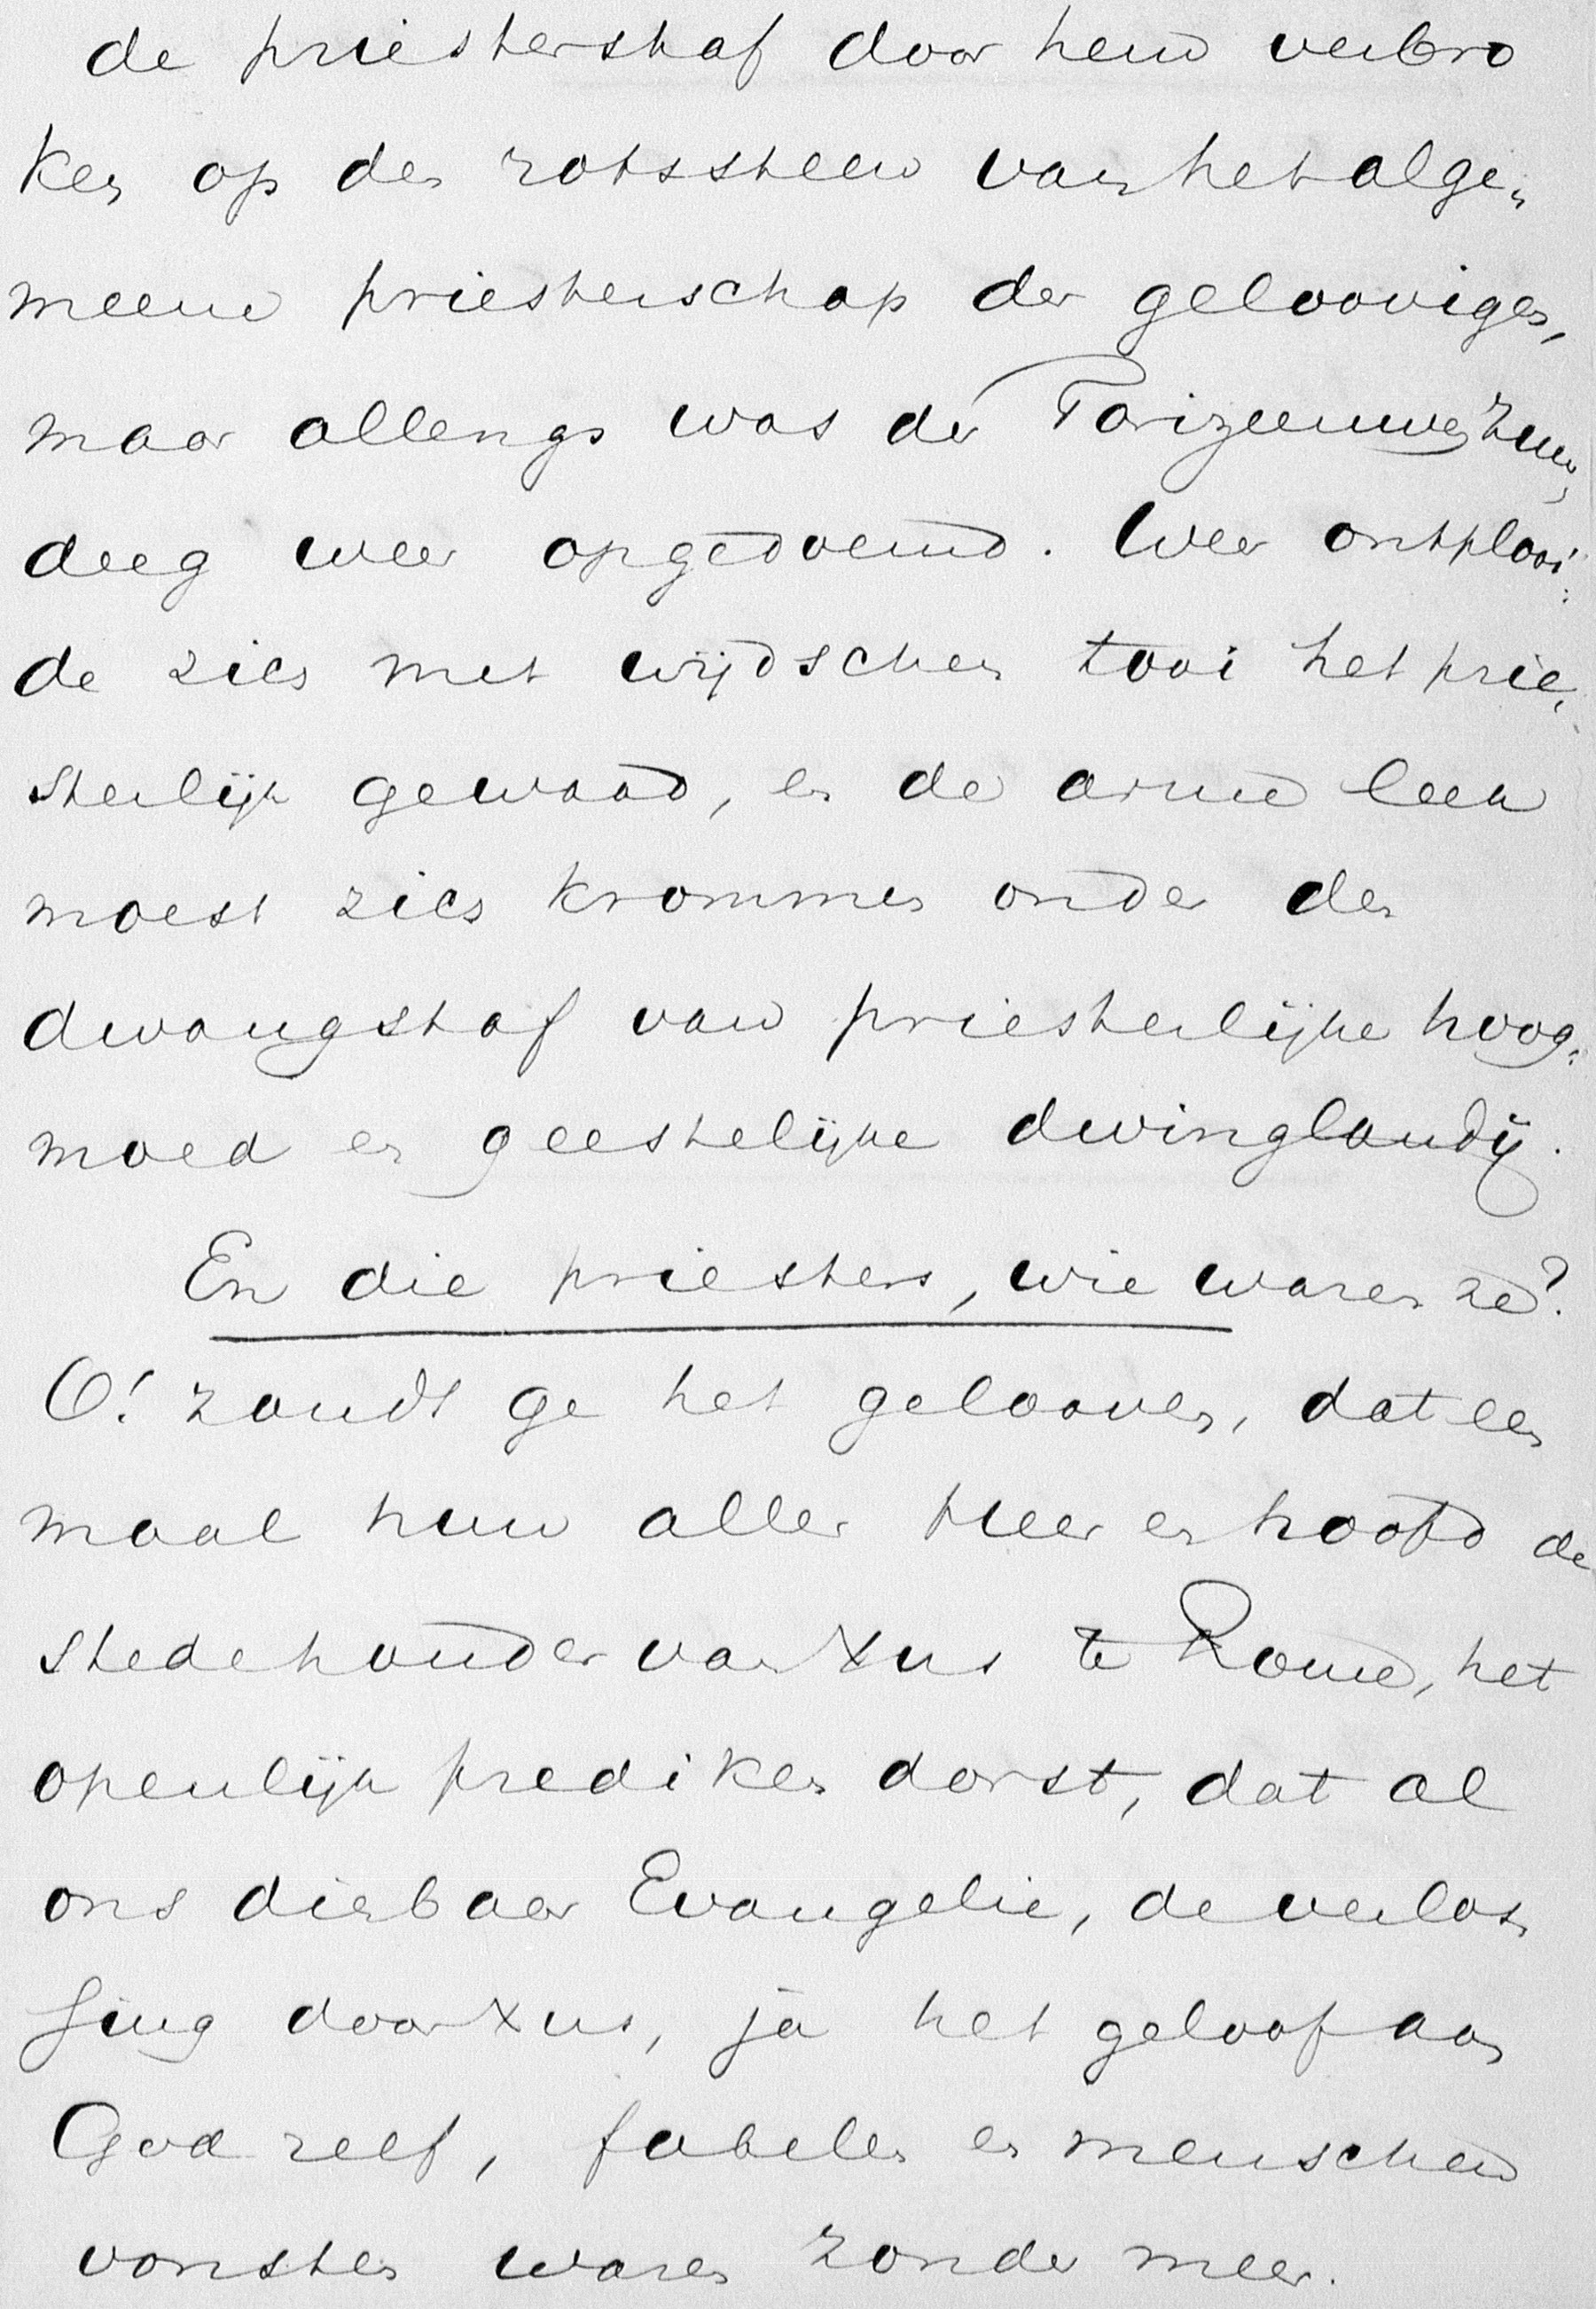 de priesterstaf door hem verbro
ken op den rotssteen van het alge„
meene priesterschap der geloovigen,
maar allengs was de Farizeeuwen zuur„
deeg weer opgedoemd. Weer ontplooi„
de zich met wijdschen tooi het prie„
sterlijk gewaad, en de arme leek
moest zich krommen onder den
dwangstaf van priesterlijke hoog„
moed en geestelijke dwinglandij.
En die priesters, wie waren ze?
O! zoudt ge het gelooven, dat een
maal hun aller Heer en hoofd de
stedehouder van Xus te Rome, het
openlijk prediken dorst, dat al
ons dierbaar Evangelie, de verlos„
sing door Xus, ja het geloof aan
God zelf, fabelen en menschen
vonsten waren zonder meer.